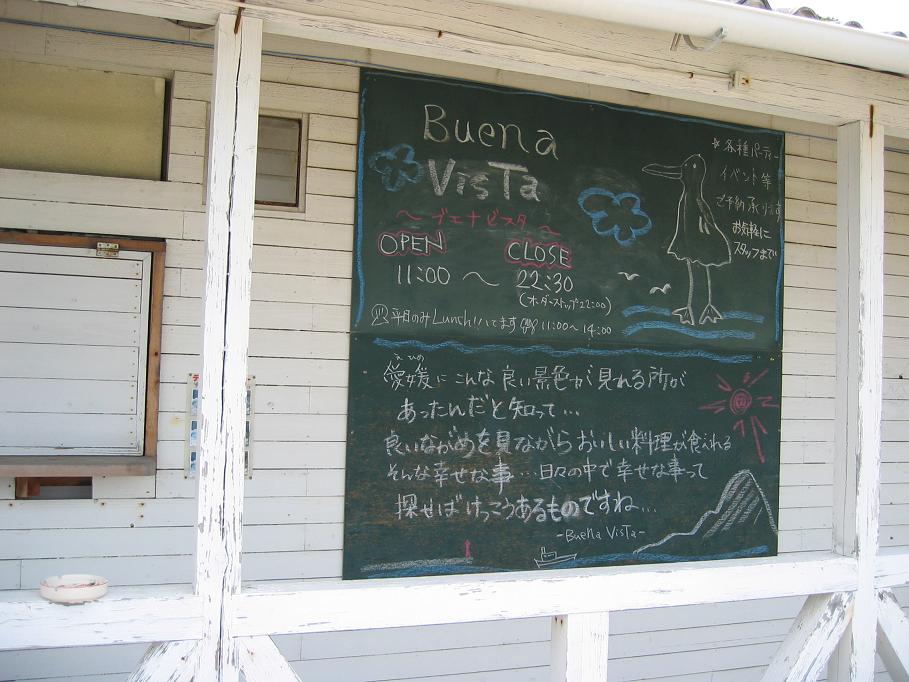 Buena
VisTa
～ブエナビスタ～
OPEN CLOSE
11:00 ～ 22:30
(オーダーストップ22:00)
平日のみLunchいてます 11:00～14:00
☆各種パーティー
イベント等
ご予約承ります
お気軽に
スタッフまで
えひめ
愛媛にこんな良い景色が見れる所が
あったんだと知って…
良いながめを見ながらおいしい料理が食べれる
そんな幸せな事…日々の中で幸せな事って
探せばけっこうあるものですね…
-Buena VisTa-